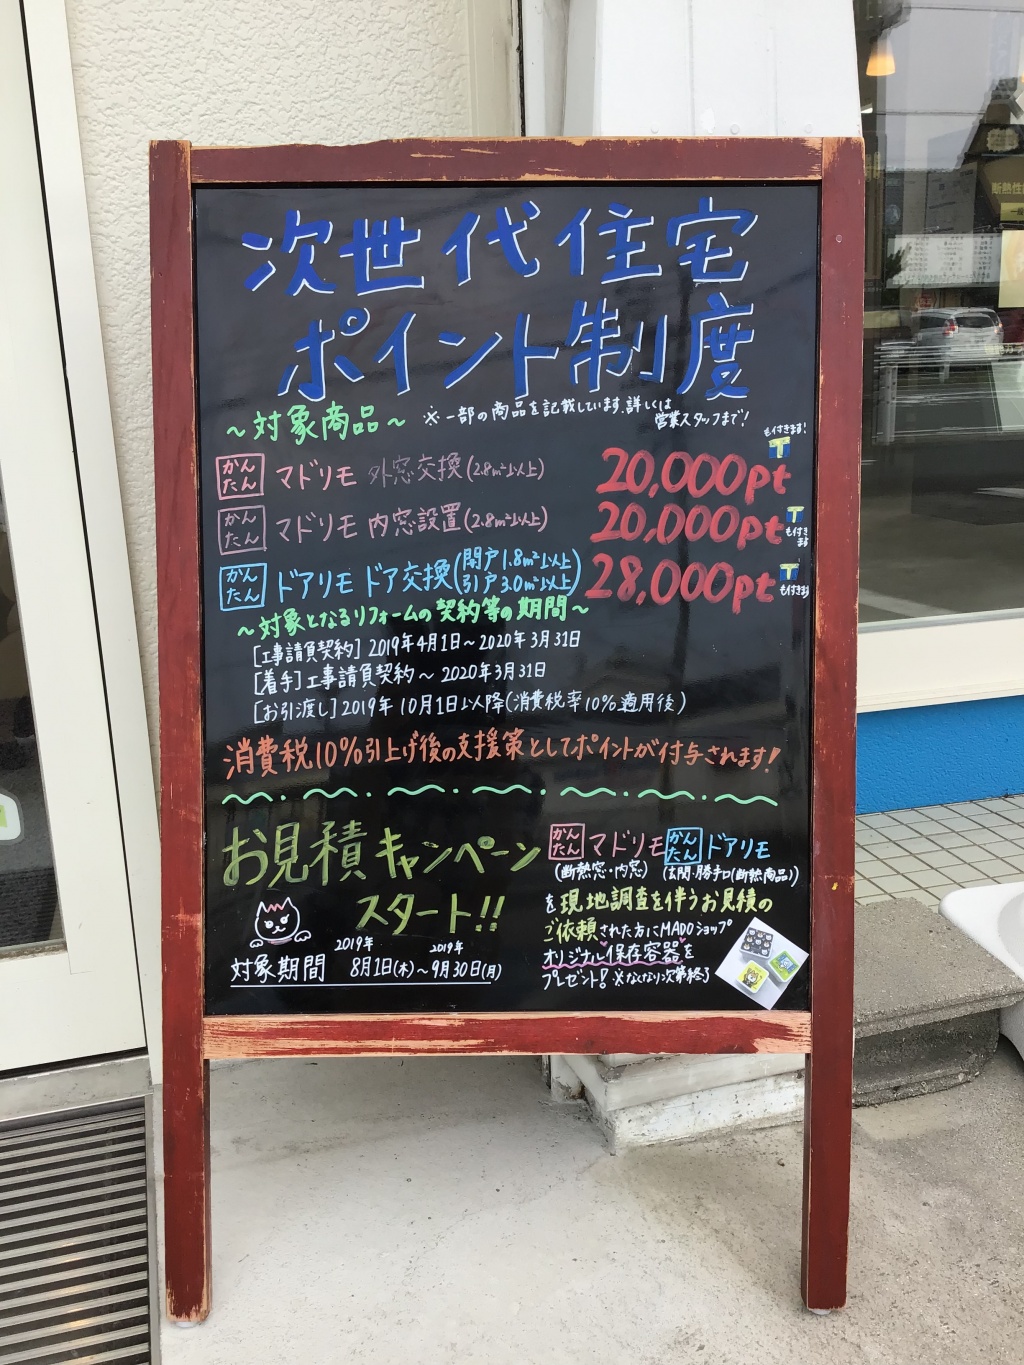 次世代住宅
ポイント制度
～対象商品～ ※一部の商品を記載しています。詳しくは
営業スタッフまで!
もイ寸きます!
かんたん マドリモ 外窓交換(2.8㎡以上) 20,000pt
かんたん マドリモ 内窓設置(2.8㎡以上) 20,000pt も付きます
かんたん ドアリモ ドア交換(開戸1.8㎡以上 引戸3.0㎡以上) 28,000pt も付きます
～対象となるリフォームの契約等の期間～
[工事請負契約] 2019年4月1日～2020年3月31日
[着手]工事請負契約～2020年3月31日
[お引渡し]2019年10月1日以降(消費税率10%適用後)
消費税10%引上げ後の支援策としてポイントが付与されます!
お見積キャンペーン
スタート!!
対象期間 2019年8月1日(木)～2019年9月30日(月)
かんたん マドリモ かんたん ドアリモ
(断熱窓・内窓) (玄関・勝手口(断熱商品))
を現地調査を伴うお見積の
ご依頼された方にMADOショップ
オリジナル保存容器を
プレゼント! ※なくなり次第終了
断熱性